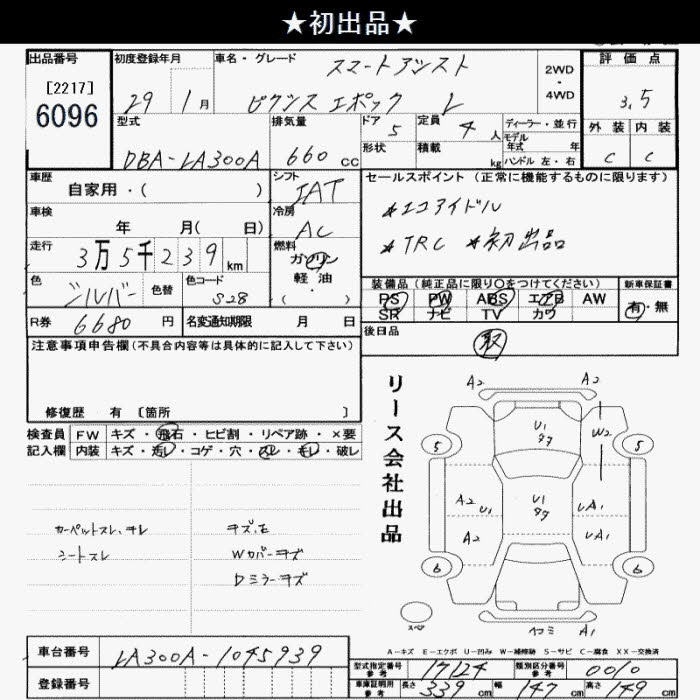 ★初出品★
出品番号 初度登録年月 車名・グレード 評価点
[2217]
6096
29 1月
スマートアシスト
ピクシス エポック L
2WD・4WD
3.5
外装 内装
C C
型式 排気量 ドア 定員 ディーラー・並行
DBA-LA300A 660cc 5 4人
形状 積載 kg
モデル年式 年
ハンドル 左・右
車歴 シフト セールスポイント (正常に機能するものに限ります)
自家用・( ) IAT
*エコアイドル
車検 冷房
年 月( 日) AC
*TRC *初出品
走行 燃料
3万5千239km
ガソリン
軽油
・( )
色 色替 色コード
シルバー S28
装備品 (純正品に限り○をつけてください) 新車保証書
PS PW ABS エアB AW
SR ナビ TV カワ
有・無
R券 6680円 名変通知期限 月 日
後日品
取
注意事項申告欄(不具合内容等は具体的に記入して下さい)
修復歴 有 [箇所 ]
検査員記入欄
FW キズ・飛石・ヒビ割・リペア跡・×要
内装 キズ・汚レ・コゲ・穴・スレ・モレ・破レ
カーペットスレ、ヨレ
シートスレ
キズ、E
Wカバーキズ
Dミラーキズ
リース会社出品
A2 A2
U1
タタ
W2
5 5
A2 U1
U1
タタ
UA1
A2 UA1
6 6
スペア
ヘコミ A1
A-キズ E-エクボ U-凹み W-補修跡 S-サビ C-腐食 XX-交換済
車台番号 LA300A-1045939
登録番号
型式指定番号 参考 17124 類別区分番号 参考 0010
車庫証明用 参考 長さ 339cm 幅 147cm 高さ 149cm